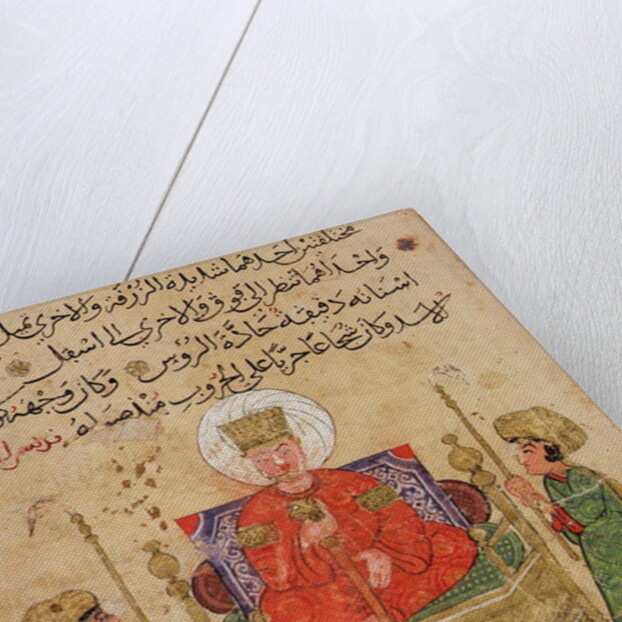 مختلفتين احدهما شديدة الزرقة والاخرى
واحداهما تنظر الى فوق والاخرى الى اسفل
اسنانه دقيقة حادّة الرؤس وكان وجهه
الاسد وكان شجاعا حربا على الحروب منذ صباه